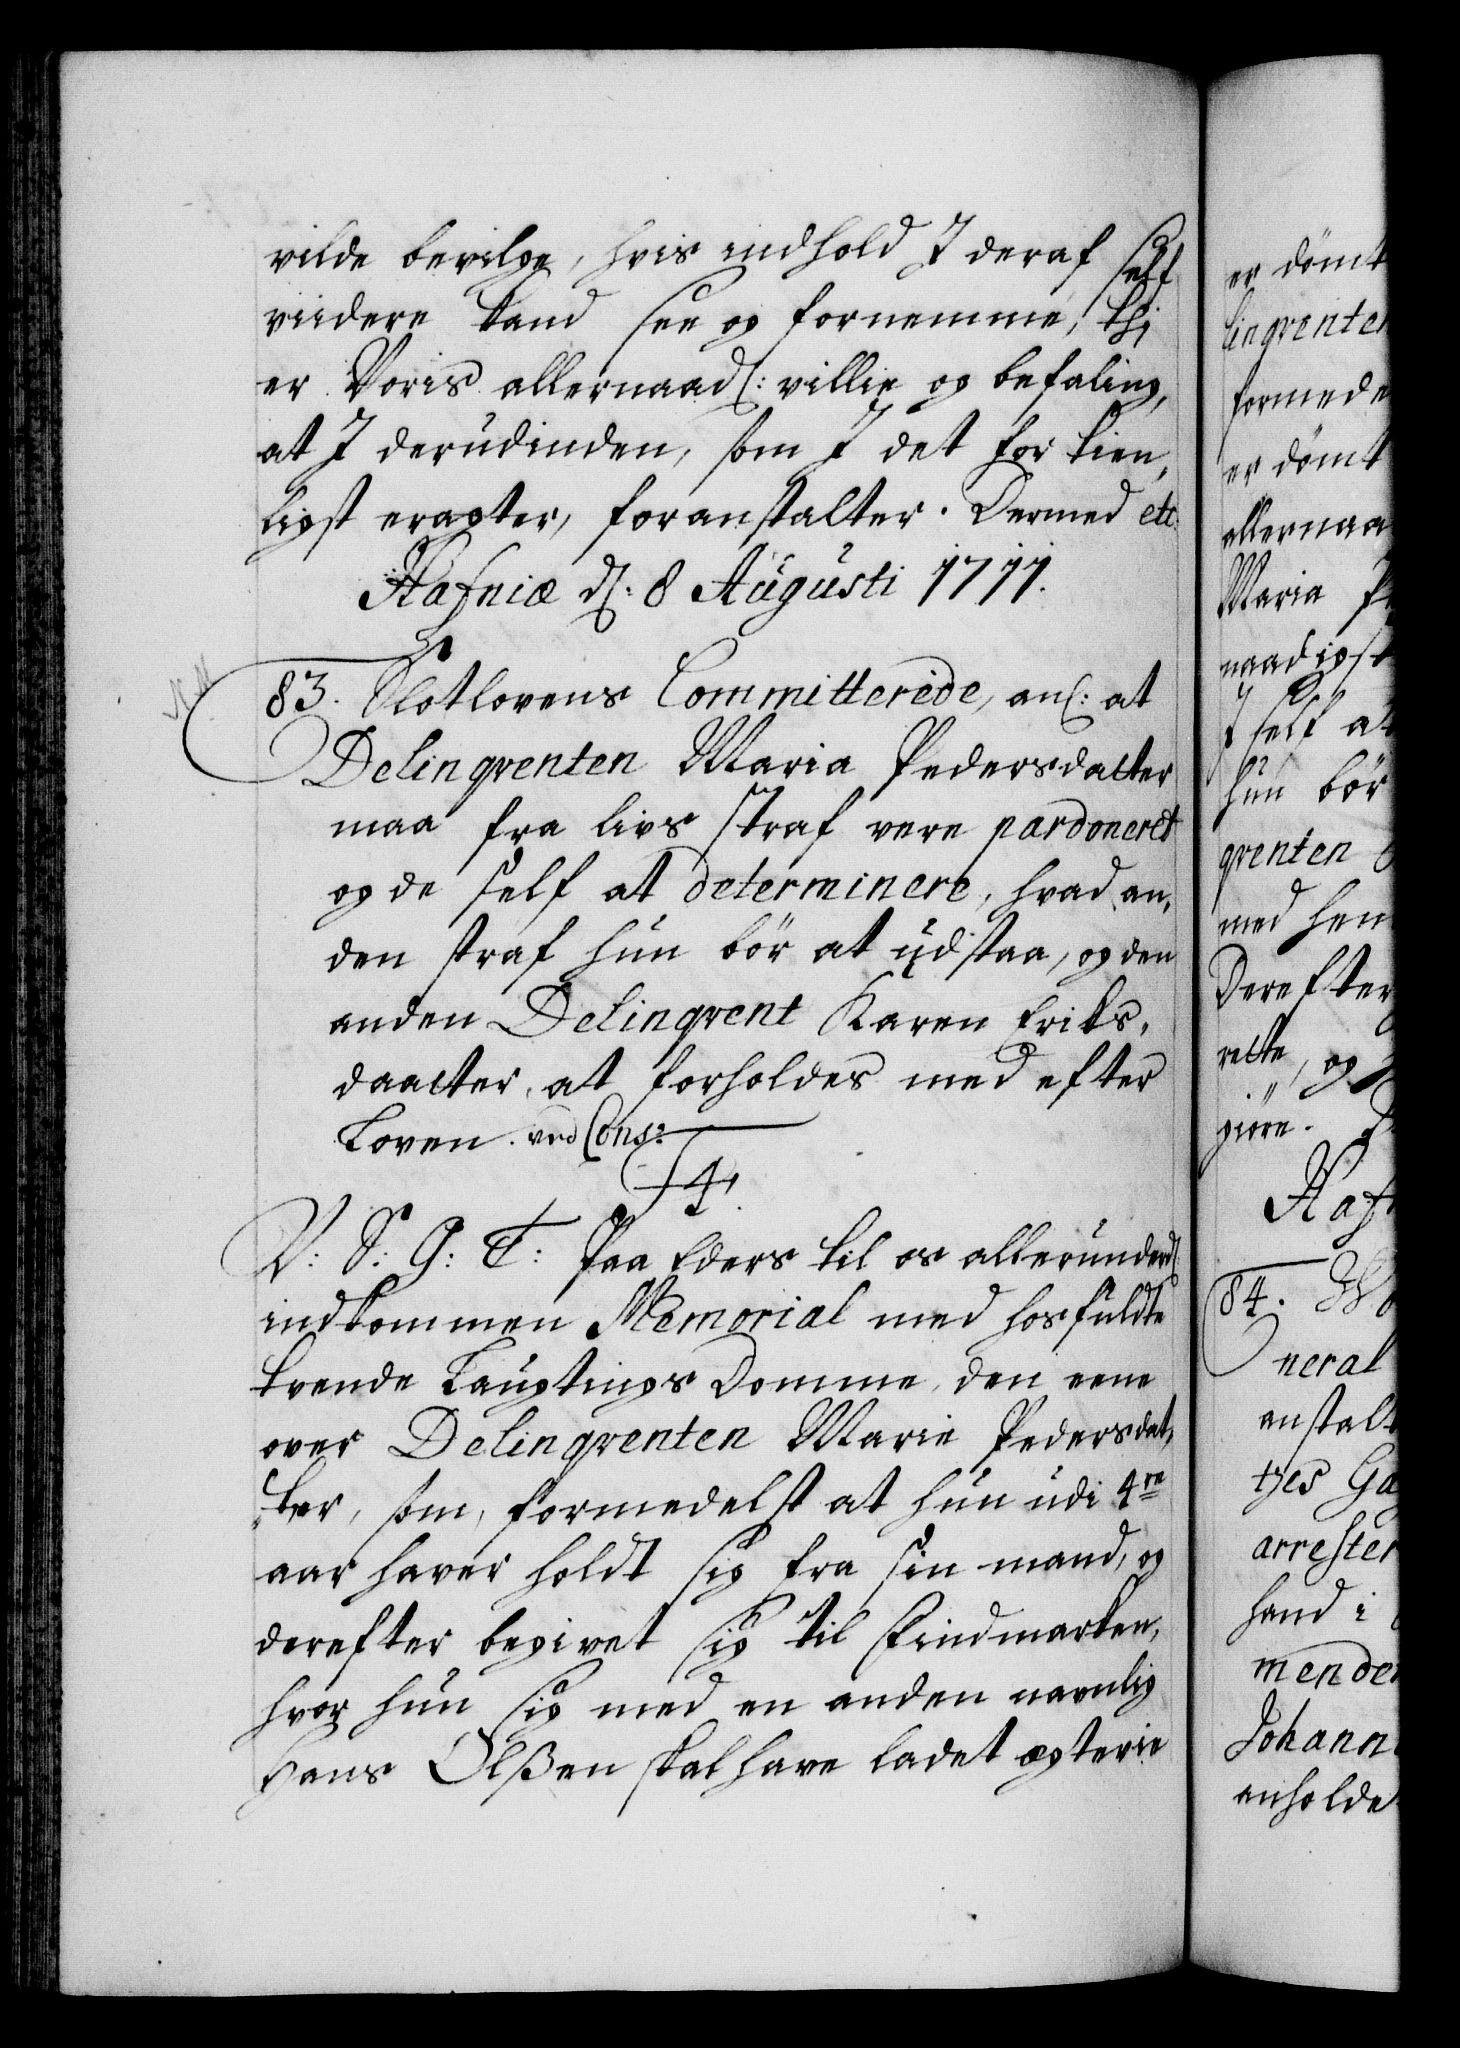 vilde bevilge, hvis indhold I deraf self
viidere kand see og fornemme, thj
er Voris allernaad: villie og befaling,
at I derudinden, som I det for tien,
ligst eragter, foranstalter. Dermed etc
Hafniæ d: 8 Augusti 1711.
83. Slotlovens Committerede, anl: at
Delinqventen Maria Pedersdatter
maa fra livs straf vere pardoneret
og de self at determinere, hvad an,
den straf hun bör at udstaa, og den
anden Delinqvent Karen Eriks,
daatter, at forholdes med efter
Loven. ved Cons:
F4.
V: S: G: T: Paa Eders til os allerunderd:
indkommen Memorial med hosfuldte
tvende Laugtings Domme, den eene
over Delinqventen Marie Pedersdat,
ter, som, formedelst at hun udi 4re
aar haver holdt sig fra sin mand, og
derefter begivet sig til Findmarken,
hvor hun sig med en anden navnlig
Hans Olßen skal have ladet egtevie
er dömt
linqventen
formede
er dömt
allernaa
Maria Pe
naadigst
I self at
hun bör
qventen
med hen
Derefter
rette, og
giöre.
Haf
84.
neral
anstalt
tzes Ga
arrester
hand i
menden
Johann
anholde